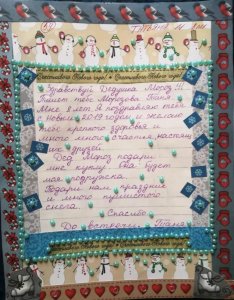 Счастливого Нового года! • Счастливого Нового года!
Здравствуй Дедушка Мороз!!!
Пишет тебе Морозова Таня
Мне 8 лет. Я поздравляю тебя
Новым 2019 годом и желаю
тебе крепкого здоровья и
много много счастья, настоящ
их друзей.
Дед Мороз подари
мне куклу она будет
моя подружка.
Подари нам праздник
и много пушистого
снега.
Спасибо.
До встречи. Таня.